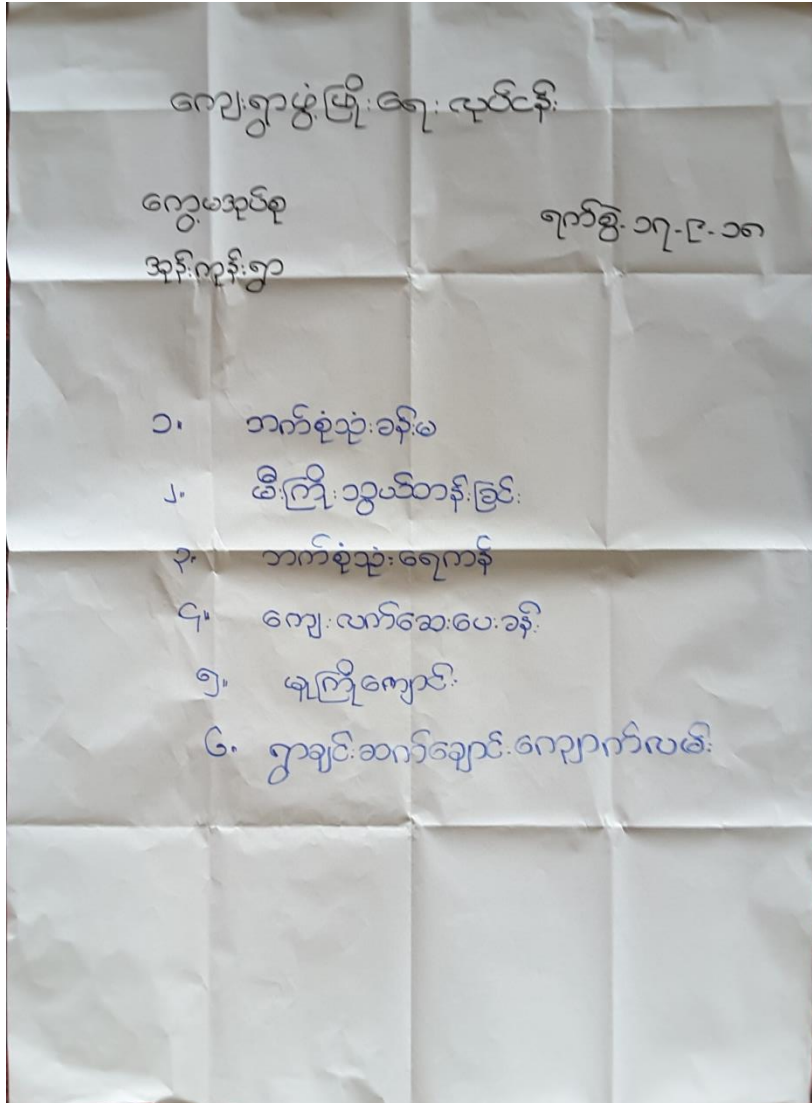 ကျေးရွာဖွံ့ဖြိုးရေးလုပ်ငန်း
ကွေ့မအုပ်စု
ရက်စွဲ- ၁၇-၉-၁၈
အုန်းကုန်းရွာ
၁။ ဘက်စုံသုံးခန်းမ
၂။ မီးကြိုးသွယ်တန်းခြင်း
၃။ ဘက်စုံသုံးရေကန်
၄။ ကျေးလက်ဆေးပေးခန်း
၅။ မူကြိုကျောင်း
၆။ ရွာချင်းဆက်ချောင်းကျောက်လမ်း